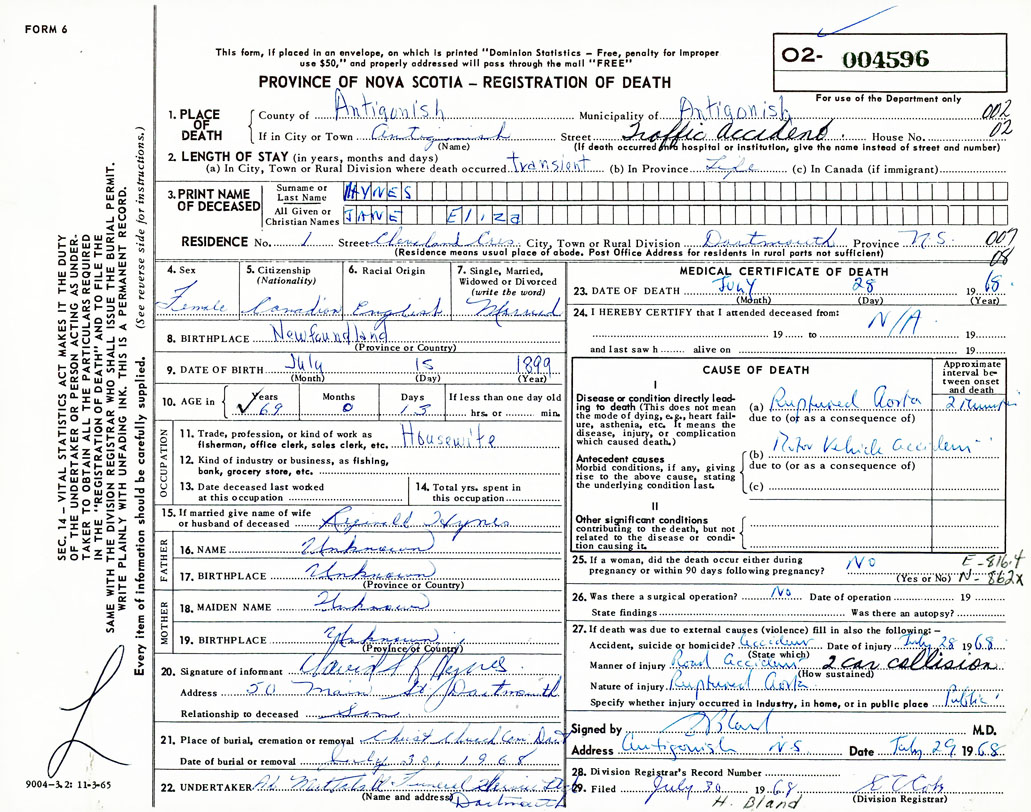 FORM 6
This form, if placed in an envelope, on which is printed "Dominion Statistics – Free, penalty for improper
use $50," and properly addressed will pass through the mail "FREE"
PROVINCE OF NOVA SCOTIA – REGISTRATION OF DEATH
O2- 004596
For use of the Department only
002
02
1. PLACE OF DEATH
County of Antigonish Municipality of Antigonish
If in City or Town Antigonish Street Traffic Accident. House No.
(Name) (If death occurred in a hospital or institution, give the name instead of street and number)
2. LENGTH OF STAY (in years, months and days)
(a) In City, Town or Rural Division where death occurred transient (b) In Province Life (c) In Canada (if immigrant)
3. PRINT NAME OF DECEASED
Surname or Last Name HYNES
All Given or Christian Names JANE Eliza
RESIDENCE No. 1 Street Cleveland Cres City, Town or Rural Division Dartmouth Province N.S. 007
(Residence means usual place of abode. Post Office Address for residents in rural parts not sufficient) 08
4. Sex Female
5. Citizenship (Nationality) Canadian
6. Racial Origin English
7. Single, Married, Widowed or Divorced (write the word) Married
8. BIRTHPLACE Newfoundland
(Province or Country)
9. DATE OF BIRTH July 15 1899
(Month) (Day) (Year)
10. AGE in Years 69 Months 0 Days 13 If less than one day old hrs. or min.
OCCUPATION
11. Trade, profession, or kind of work as fisherman, office clerk, sales clerk, etc. Housewife
12. Kind of industry or business, as fishing, bank, grocery store, etc.
13. Date deceased last worked at this occupation
14. Total yrs. spent in this occupation
15. If married give name of wife or husband of deceased Reginald Hynes
FATHER
16. NAME Unknown
17. BIRTHPLACE Unknown
(Province or Country)
MOTHER
18. MAIDEN NAME Unknown
19. BIRTHPLACE Unknown
(Province or Country)
20. Signature of informant David Hynes
Address 50 Main St Dartmouth
Relationship to deceased Son
21. Place of burial, cremation or removal Christ Church Cem Dart
Date of burial or removal July 30, 1968
22. UNDERTAKER Funeral
(Name and address) Dartmouth
MEDICAL CERTIFICATE OF DEATH
23. DATE OF DEATH July 28 1968
(Month) (Day) (Year)
24. I HEREBY CERTIFY that I attended deceased from: N/A
19 to 19
and last saw h alive on 19
CAUSE OF DEATH
Approximate interval between onset and death
I
Disease or condition directly leading to death (This does not mean the mode of dying, e.g., heart failure, asthenia, etc. It means the disease, injury, or complication which caused death.)
(a) Ruptured Aorta 2 Minutes
due to (or as a consequence of)
Antecedent causes
Morbid conditions, if any, giving rise to the above cause, stating the underlying condition last.
(b) Motor Vehicle Accident
due to (or as a consequence of)
(c)
II
Other significant conditions
contributing to the death, but not related to the disease or condition causing it.
25. If a woman, did the death occur either during pregnancy or within 90 days following pregnancy? No
(Yes or No)
E-816.4
N-862x
26. Was there a surgical operation? No Date of operation 19
State findings Was there an autopsy?
27. If death was due to external causes (violence) fill in also the following:–
Accident, suicide or homicide? Accident Date of injury July 28 1968
(State which)
Manner of injury Road Accident 2 car collision
(How sustained)
Nature of injury Ruptured Aorta
Specify whether injury occurred in industry, in home, or in public place Public
Signed by Bland M.D.
Address Antigonish NS Date July 29 1968
28. Division Registrar's Record Number
29. Filed July 30 1968
H. Bland
(Division Registrar)
SEC. 14 – VITAL STATISTICS ACT MAKES IT THE DUTY
OF THE UNDERTAKER OR PERSON ACTING AS UNDER-
TAKER TO OBTAIN ALL THE PARTICULARS REQUIRED
IN THE "REGISTRATION OF DEATH" AND TO FILE THE
SAME WITH THE DIVISION REGISTRAR WHO SHALL ISSUE THE BURIAL PERMIT.
WRITE PLAINLY WITH UNFADING INK. THIS IS A PERMANENT RECORD.
Every item of information should be carefully supplied. (See reverse side for instructions.)
9004-3.2: 11-3-65